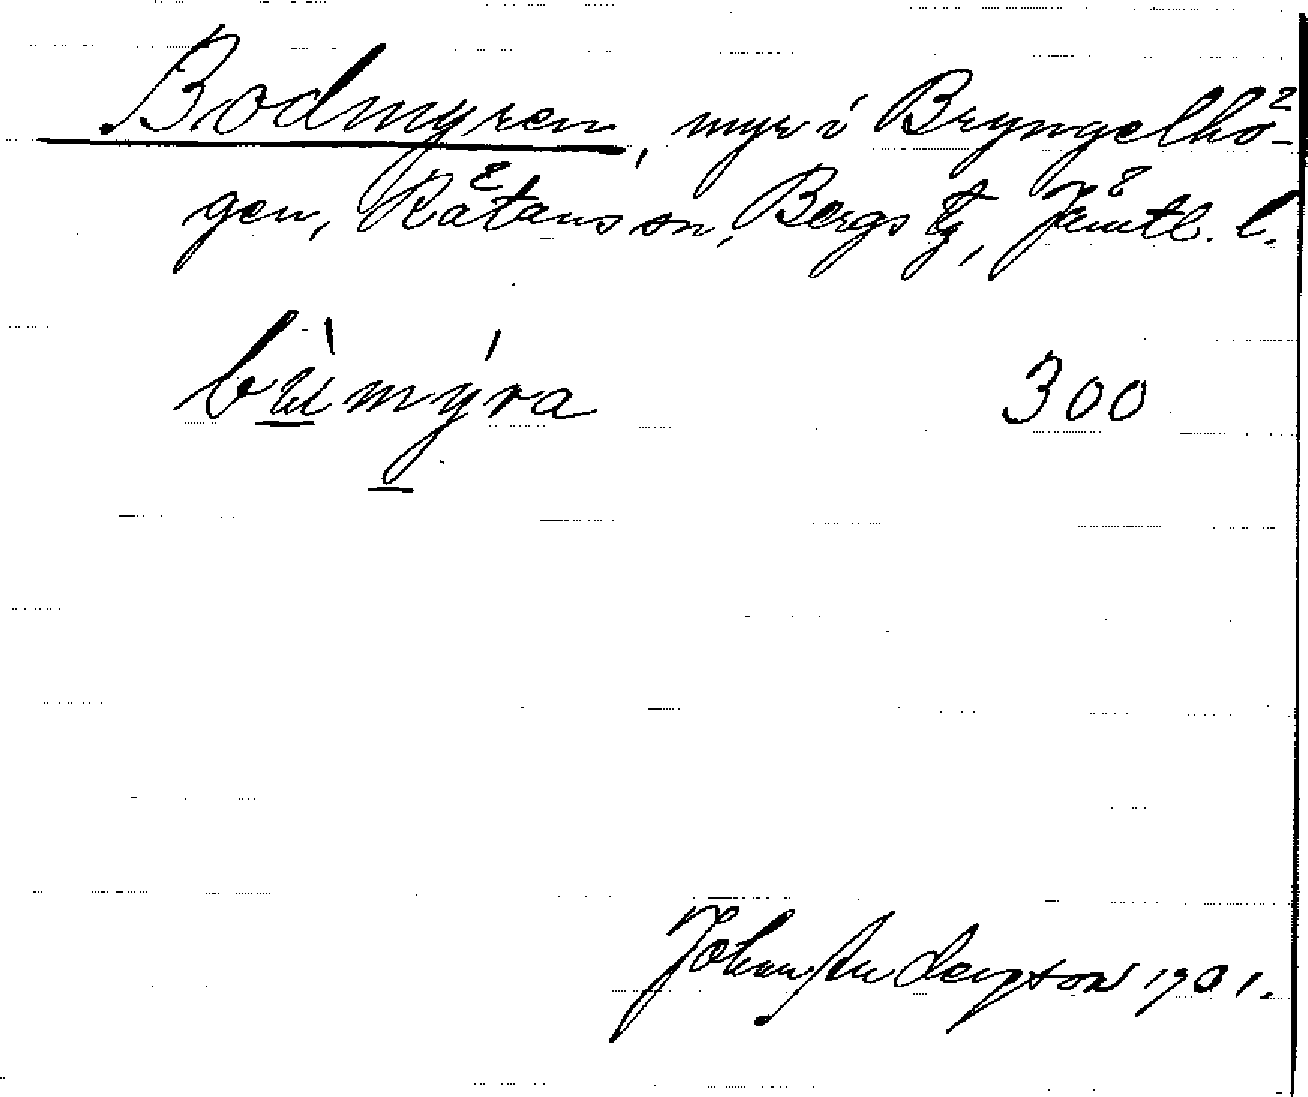 Bodmyren, myr i Bryngelhö-
gen, Rätans sn, Bergs tg, Jämtl. l.
bu̲mýra 300
Johan Anderson 1931.